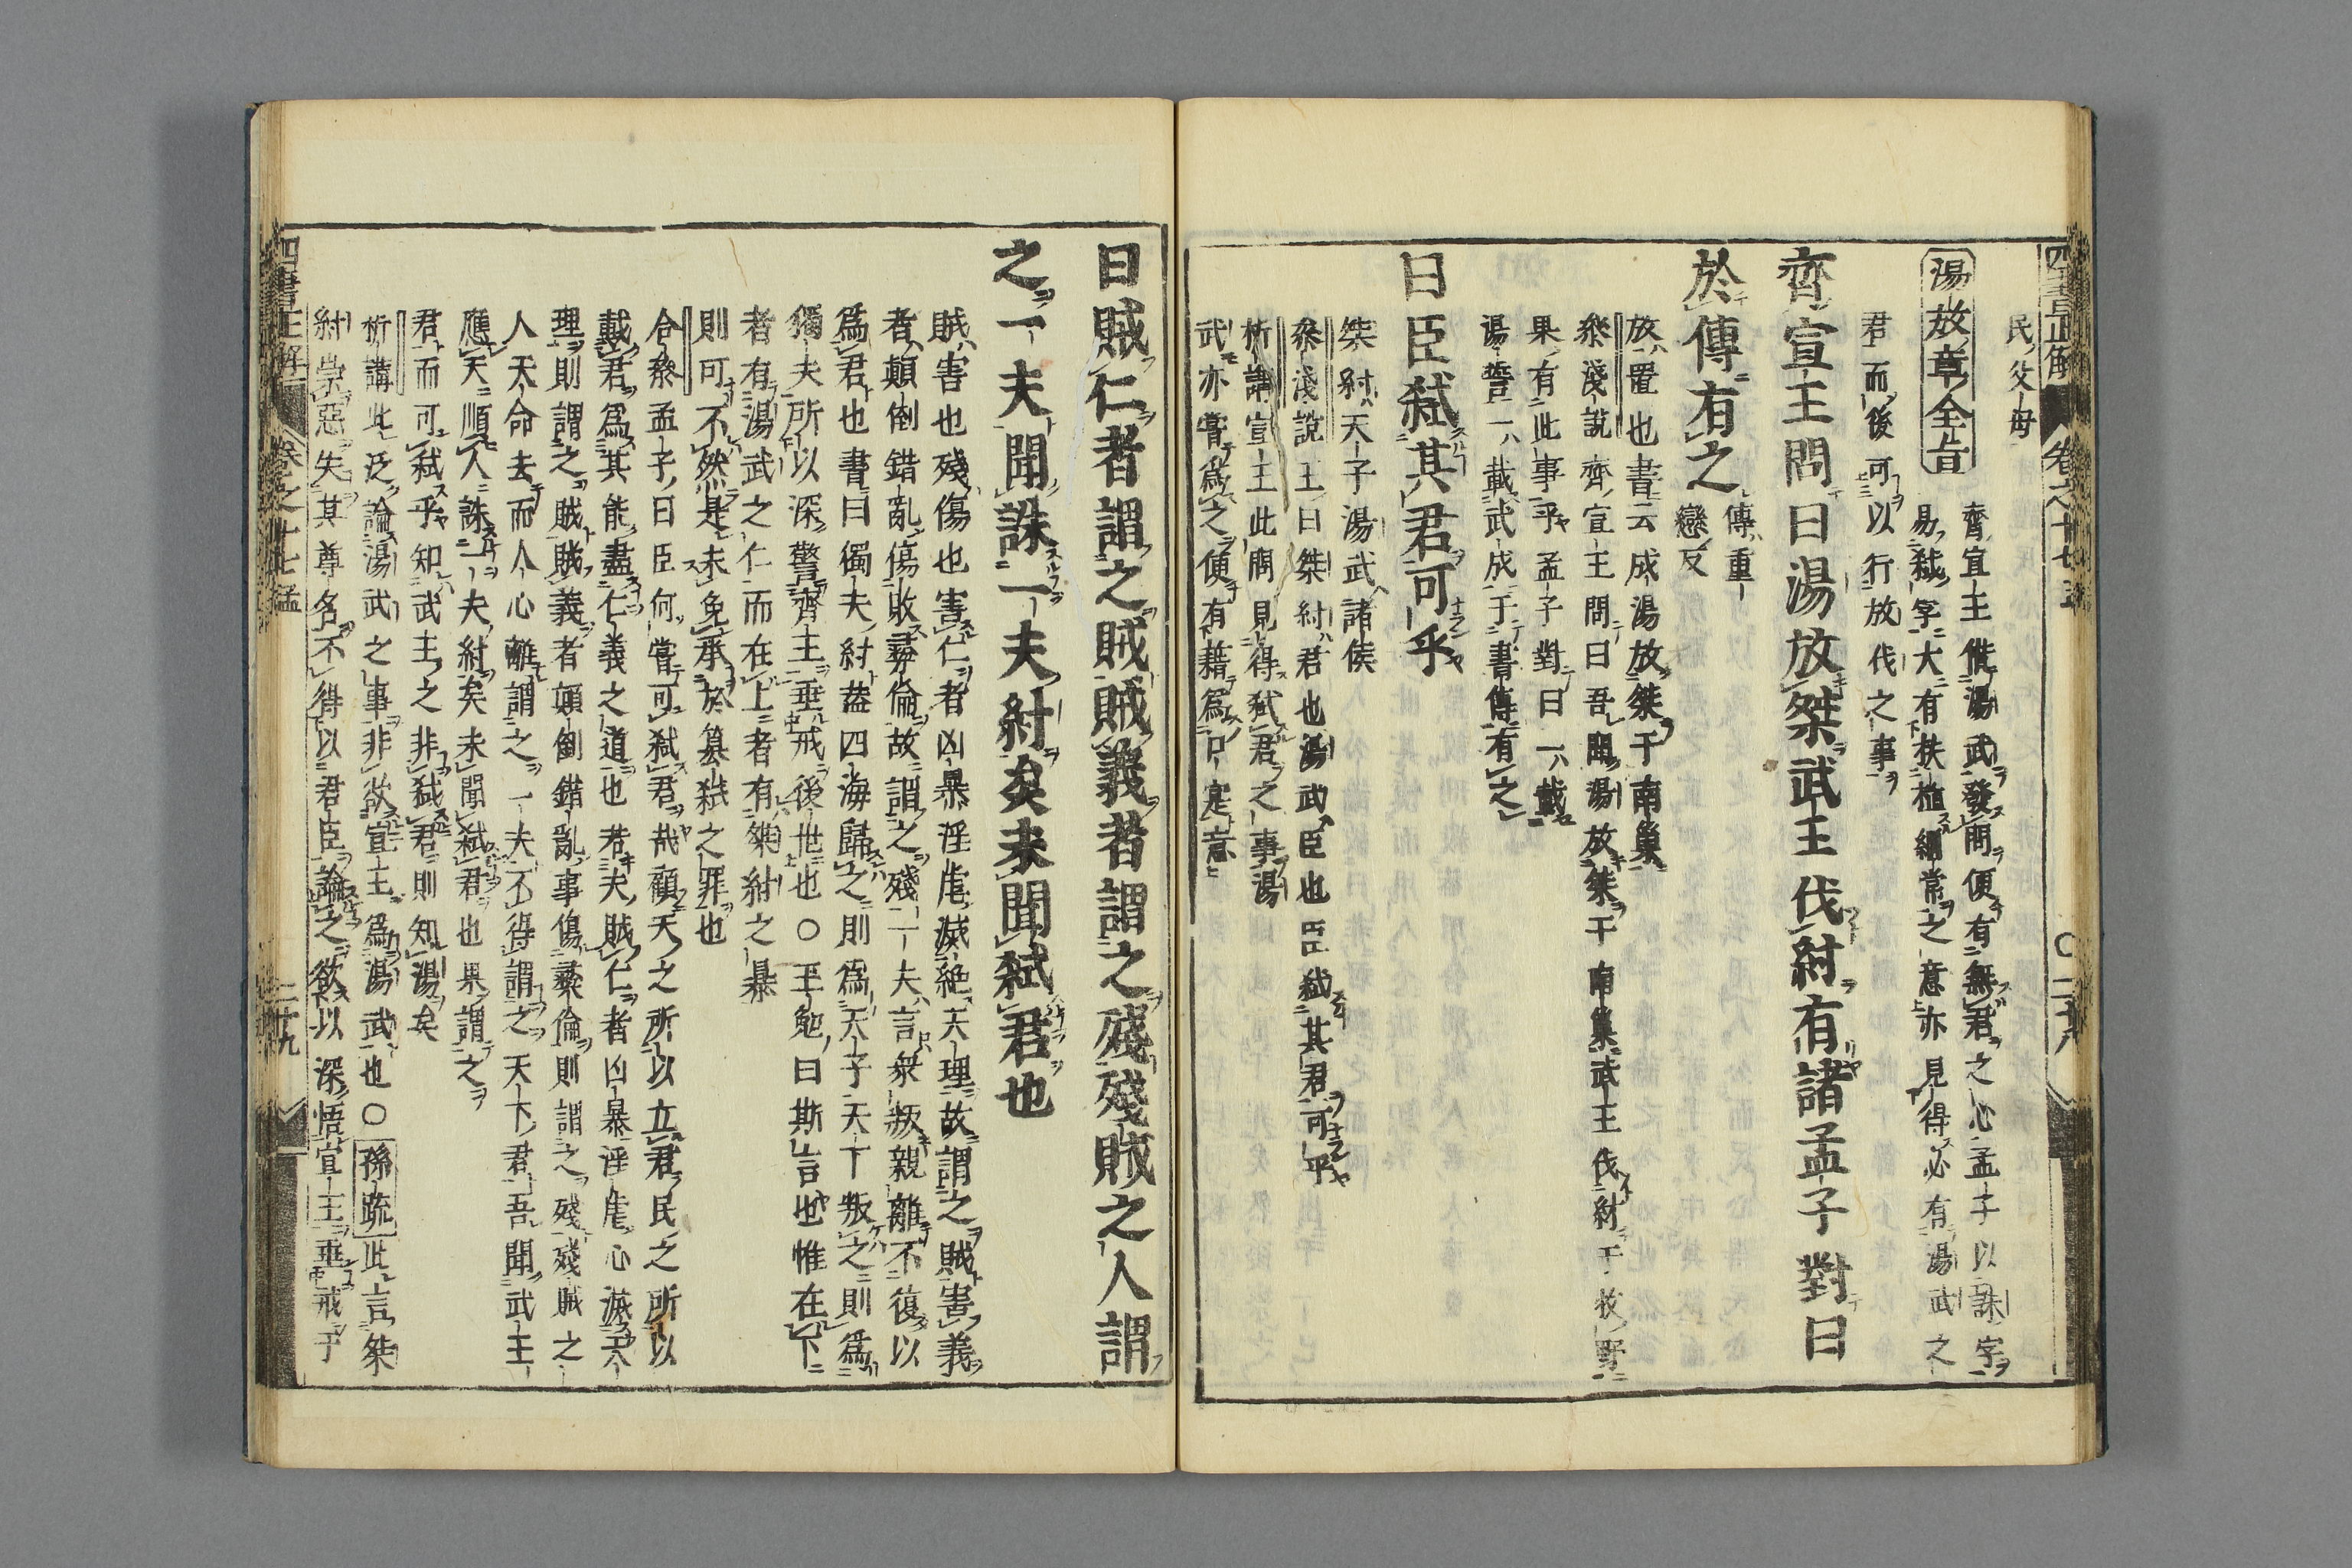 四書正解 卷之十七 孟 〇二十八
民父母
湯放章全旨
齊宣王借湯武發問便有無君之心孟子以誅字
易弑字大有扶植綱常之意亦見得必有湯武之
君而後可以行放伐之事
齊宣王問曰湯放桀武王伐紂有諸孟子對曰
於傳有之
傳重
戀反
放置也書云成湯放桀于南巢
叅淺說齊宣王問曰吾聞湯放桀于南巢武王伐紂于牧野
果有此事乎孟子對曰一載
湯誓一載武成于書傳有之
曰臣弑其君可乎
桀紂天子湯武諸侯
叅淺說王曰桀紂君也湯武臣也臣弑其君可乎
析講宣王此問見得弑君之事湯
武亦嘗爲之便有藉爲口寔意
曰賊仁者謂之賊賊義者謂之殘殘賊之人謂
之一夫聞誅一夫紂矣未聞弑君也
賊害也殘傷也害仁者凶暴淫虐滅絶天理故謂之賊害義
者顛倒錯亂傷敗彛倫故謂之殘一夫言衆叛親離不復以
爲君也書曰獨夫紂葢四海歸之則爲天子天下叛之則爲
獨夫所以深警齊王垂戒後世也〇王勉曰斯言也惟在下
者有湯武之仁而在上者有桀紂之暴
則可不然是未免於簒弑之罪也
合叅孟子曰臣何嘗可弑君哉顧天之所以立君民之所以
戴君爲其能盡仁義之道也若夫賊仁者凶暴淫虐心滅天
理則謂之賊賊義者顛倒錯亂事傷彛倫則謂之殘殘賊之
人天命去而人心離謂之一夫不得謂之天下君吾聞武王
應天順人誅一夫紂矣未聞弑君也果謂之
君而可弑乎知武王之非弑君則知湯矣
析講此泛論湯武之事非欲宣王爲湯武也〇孫疏此言桀
紂崇惡失其尊名不得以君臣論之欲以深悟宣王垂戒于
四書正解 卷之十七 孟 二十九